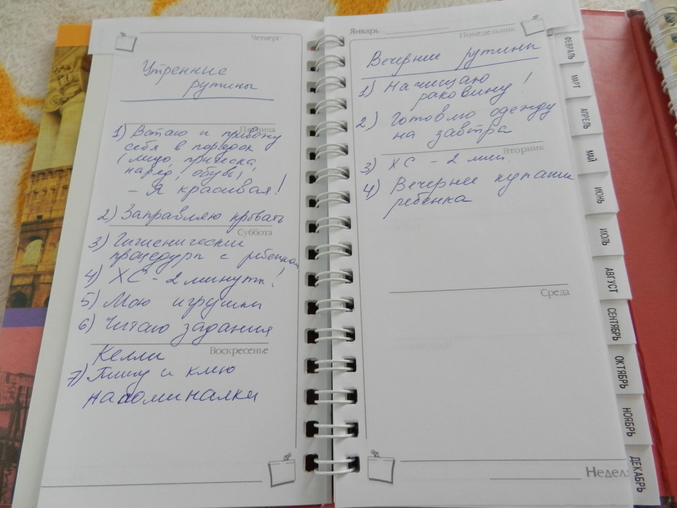 Четверг
Утренние
рутины
Пятница
1) Встаю и привожу
себя в порядок
(лицо, прическа,
наряд, обувь)!
- Я красивая!
2) Заправляю кровать
Суббота
3) Гигиенические
процедуры с ребенком
4) ХС - 2 минуты!
5) Мою игрушки
6) Читаю задания
Келли
Воскресенье
7) Пишу и клею
напоминалки
Январь
Понедельник
Вечерние рутины
1) Начищаю
раковину!
2) Готовлю одежду
на завтра
Вторник
3) ХС - 2 мин
4) Вечернее купание
ребенка
Среда
Недел
ФЕВРАЛЬ
МАРТ
АПРЕЛЬ
МАЙ
ИЮНЬ
ИЮЛЬ
АВГУСТ
СЕНТЯБРЬ
ОКТЯБРЬ
НОЯБРЬ
ДЕКАБРЬ